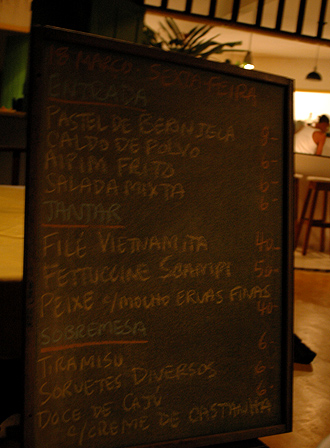 18 MARÇO SEXTA FEIRA
ENTRADA
PASTEL DE BERINJELA 8-
CALDO DE POLVO 6-
AIPIM FRITO 6-
SALADA MIXTA 6-
JANTAR
FILÉ VIETNAMITA 40-
FETTUCCINE SCAMPI 50-
PEIXE C/MOLHO ERVAS FINAS 40-
SOBREMESA
TIRAMISU 6-
SORVETES DIVERSOS 6-
DOCE DE CAJÚ 6-
C/CREME DE CASTANHA